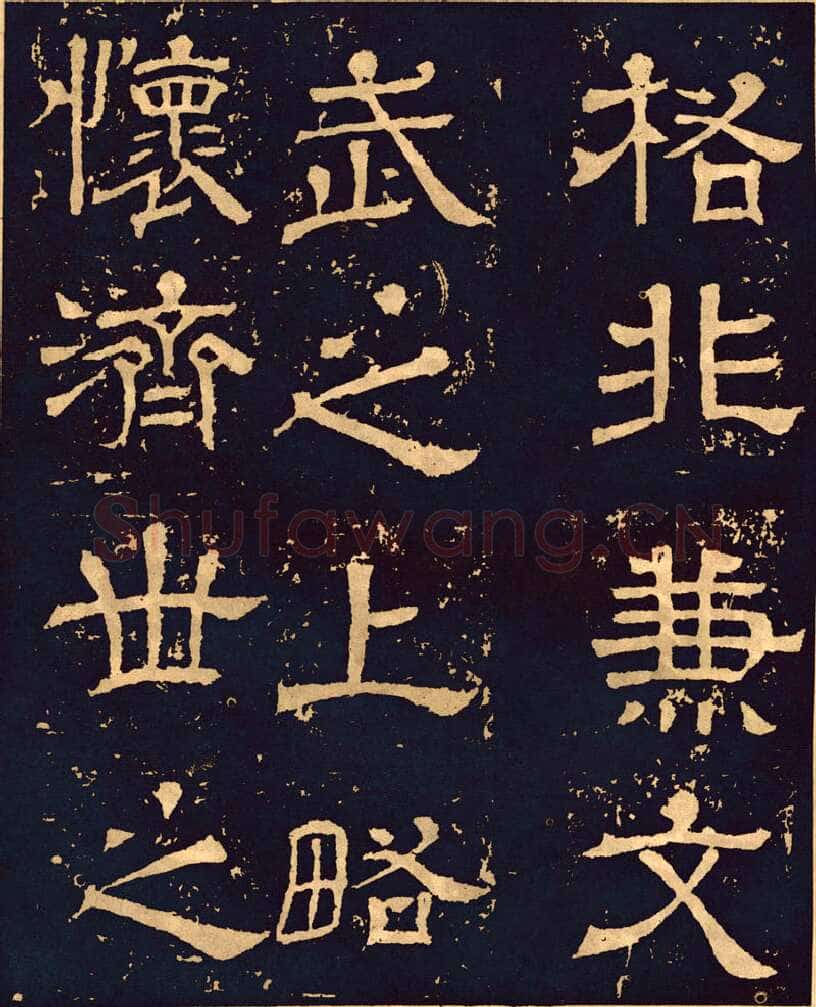 格非兼文
武之上略
懷濟世之
Shufawang.CN